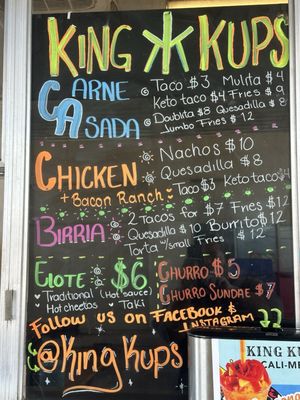 KING KUPS
CARNE
ASADA
Taco $3 Mulita $4
Keto taco $4 Fries $9
Doublita $8 Quesadilla $8
Jumbo Fries $12
CHICKEN
+ Bacon Ranch
Nachos $10
Quesadilla $8
Taco $3 Keto taco $4
BIRRIA
2 Tacos for $7 Fries $12
Quesadilla $10 Burrito $12
Torta w/small Fries $12
ELOTE $6
Traditional (Hot sauce)
Hot cheetos Taki
CHURRO $5
CHURRO SUNDAE $7
FOLLOW US ON FACEBOOK &
INSTAGRAM
@KING KUPS
KING K
CALI-ME